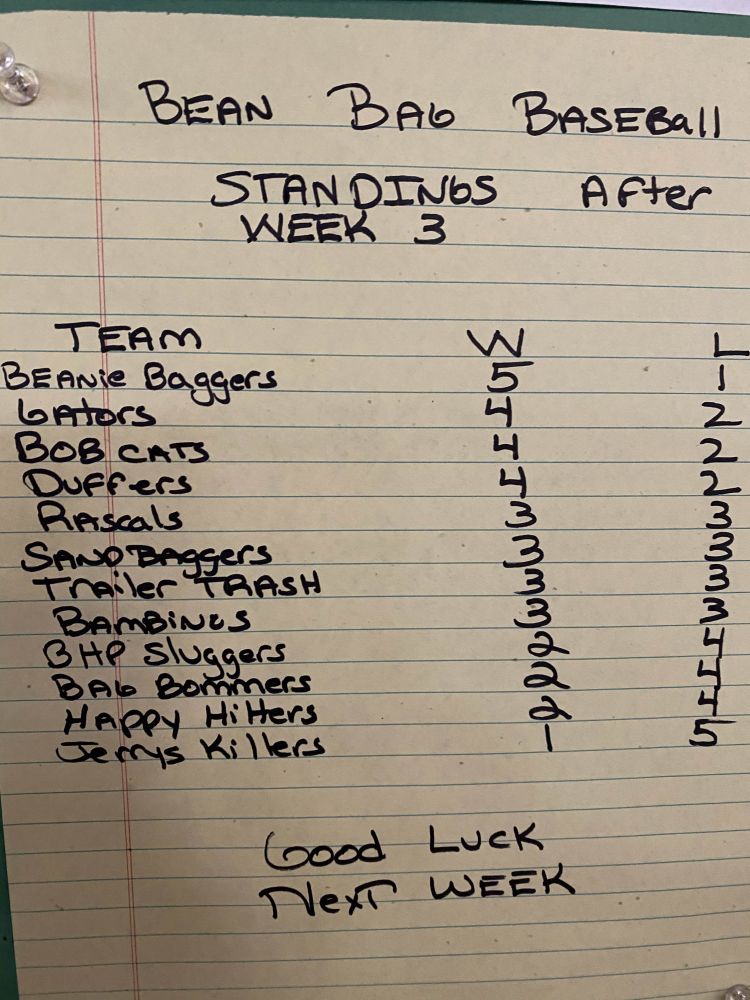 BEAN BAG BASEBall
STANDINGS AFter
WEEK 3
TEAM W L
BEANie Baggers 5 1
GAtors 4 2
BOB CATS 4 2
DuFFers 4 2
RAscals 3 3
SANDBAggers 3 3
Trailer TRASH 3 3
BAMBINOS 3 3
BHP Sluggers 2 4
BAG Bommers 2 4
HAPPY Hitters 2 4
Jerrys Killers 1 5
Good LUCK
NexT WEEK